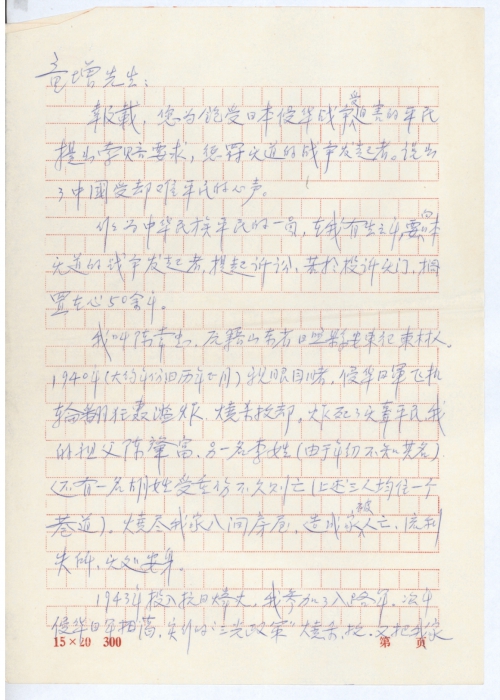 童增先生:
报载,您为饱受日本侵华战争迫害的平民
提出索赔要求,惩罚无道的战争发起者。说出
了中国受难平民的心声。
作为中华民族平民的一员,在我有生之年,要向
无道的战争发起者,提起诉讼,苦于投诉无门,搁
置在心50余年。
我叫陈,原籍山东省日照县
1940年(大约年份旧历年正月)亲眼目睹,侵华日军飞机
轮翻狂轰滥炸,烧杀,炸死了无辜平民我
的祖父陈肇富,另一名李姓(由于年幼不知其名)
还有一名胡姓受重伤不久则亡(上述三人均住一个
巷道)。烧尽我家八间房屋,造成家破人亡,流利
失所,无处安身。
1943年投入抗日烽火,我参加了八路军,次年
侵华日军扫荡,实行的“三光政策”烧杀抢,又把我家
15×20 300 第 页